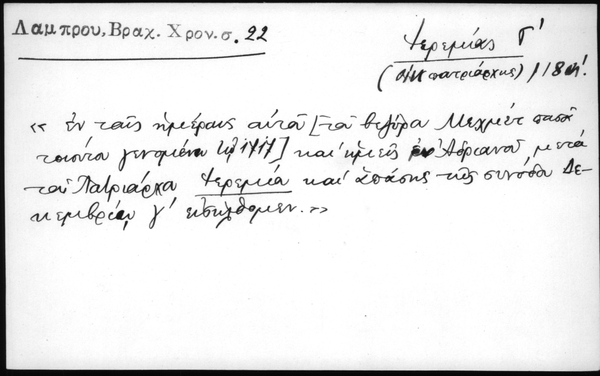 Λαμπρου, Βραχ. Χρον. σ. 22
Ἱερεμίας Γ'
(οἰκ. πατριάρχης) 18 αἰ.
« Ἐν ταῖς ἡμέραις αὐτοῦ [τοῦ βεζύρα Μεχμὲτ πασᾶ
τοιούτου γενομένου 1717] καὶ ἡμεῖς Ἀδριανοῦ μετὰ
τοῦ Πατριάρχα Ἱερεμία καὶ ἁπάσης τῆς συνόδου Δε-
κεμβρίῳ γ' εἰσήλθομεν. »